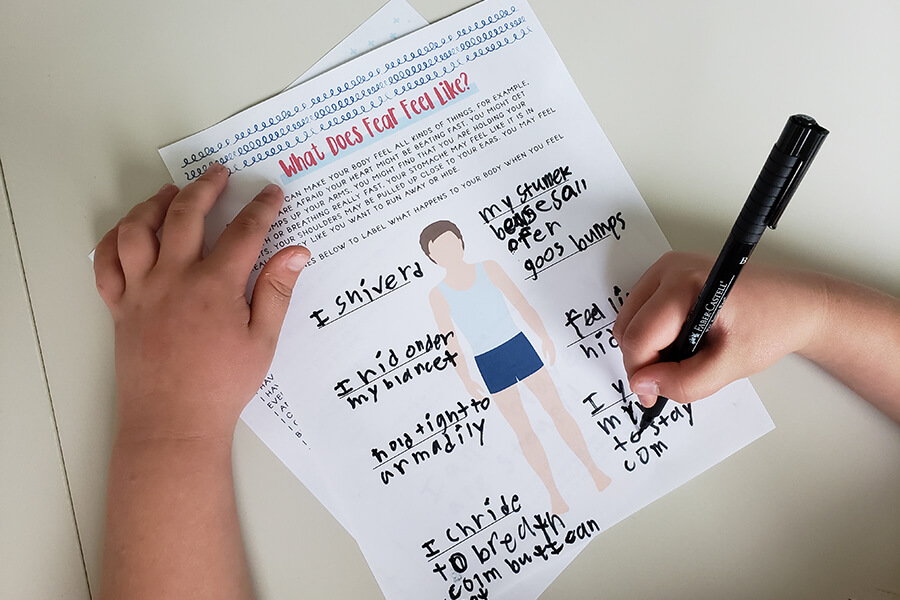 What Does Fear Feel Like?
CAN MAKE YOUR BODY FEEL ALL KINDS OF THINGS. FOR EXAMPLE,
ARE AFRAID YOUR HEART MIGHT BE BEATING FAST. YOU MIGHT GET
UMPS UP YOUR ARMS. YOU MIGHT FIND THAT YOU ARE HOLDING YOUR
OR BREATHING REALLY FAST. YOUR STOMACHE MAY FEEL LIKE IT IS IN
TS. YOUR SHOULDERS MAY BE PULLED UP CLOSE TO YOUR EARS. YOU MAY FEEL
LIKE YOU WANT TO RUN AWAY OR HIDE.
ES BELOW TO LABEL WHAT HAPPENS TO YOUR BODY WHEN YOU FEEL
my stumek
ofer
goos bumps
I shiverd
feel
hid
I hid onder
my blancet
I
my
to stay
com
hold tight to
armadily
I chride
to bredth
colm but I can
FABER-CASTELL
B